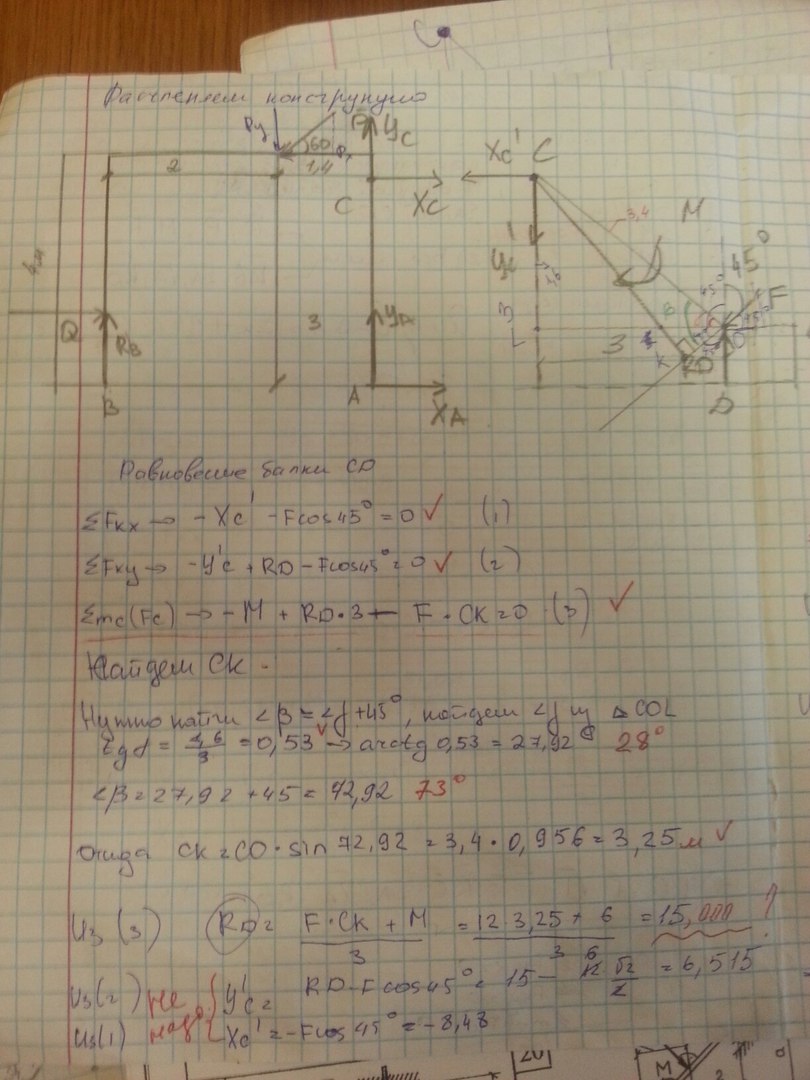 Расчленяем конструкцию
Py
60
yc
Xc'
C
2
1,4
C
Xc
3,4
M
45°
yc'
F
45°
Q
RB
3
yA
3
L
3
K
RD
O
B
A
XA
D
Равновесие балки CD
ΣFкx → - Xc' - Fcos45° = 0 ✓ (1)
ΣFкy → - y'c + RD - Fcos45° = 0 ✓ (2)
Σmc(Fc) → - M + RD·3 - F·CK = 0 (3) ✓
Найдем CK -
Нужно найти <β = <γ + 45°, найдем <γ из △COL
tgγ = 1,6/3 = 0,53 → arctg 0,53 = 27,92° 28°
<β = 27,92 + 45 = 72,92 73°
откуда CK = CO · sin 72,92 = 3,4 · 0,956 = 3,25м ✓
Из (3) RD = F·CK + M / 3 = 12·3,25 + 6 / 3 = 15,000 !
Из(2) не { y'c = RD - Fcos45° = 15 - 12 6 √2/2 = 6,515
Из(1) надо { Xc' = - Fcos45° = - 8,48
M
2